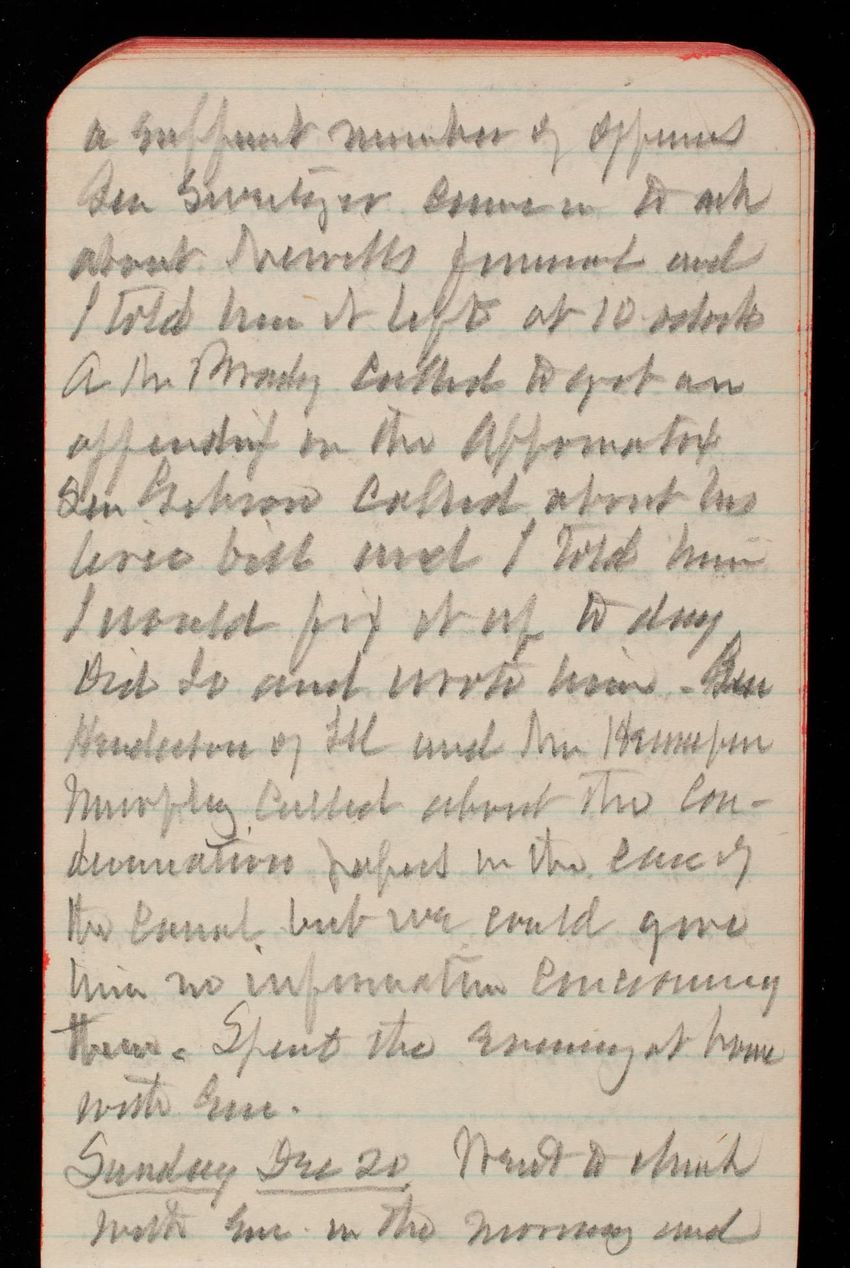 a sufficient number of officers
Gen Sweitzer came in to ask
about Newells funeral and
I told him it left at 10 oclock
A Mr Brady called to get an
appendix on the Appomattox
Gen Gibson called about his
civic bill and I told him
I would fix it up to day
Did so and wrote him - Gen
Henderson of Ill and Mr
Murphy called about the Con-
demnation papers in the case of
the Canal but we could give
him no information concerning
them. Spent the evening at home
with Eve.
Sunday Dec 20 Went to church
with Eve. in the morning and